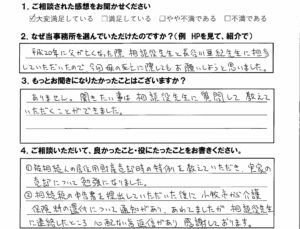 1. ご相談された感想をお聞かせください
☑大変満足している □満足している □やや不満である □不満である
2. なぜ当事務所を選んでいただけたのですか?(例 HPを見て、紹介で)
平成20年に父が亡くなった際、相談役先生と長谷川亜紀先生に担当
していただいたので、今回母の死亡に際してもお願いしようと思いました。
3. もっとお聞きになりたかったことはございますか?
ありません。聞きたい事は相談役先生に質問して教えて
いただくことができました。
4. ご相談いただいて、良かったこと・役にたったことをお書きください。
①被相続人の居住用財産売却時の特例を教えていただき、実家の
売却について勉強になりました。
②相続税の申告書を提出していただいた後に小牧市から介護
保険料の還付について通知があり、あわてましたが相談役先生
に連絡したところ心配ない旨返信があり感謝しております。